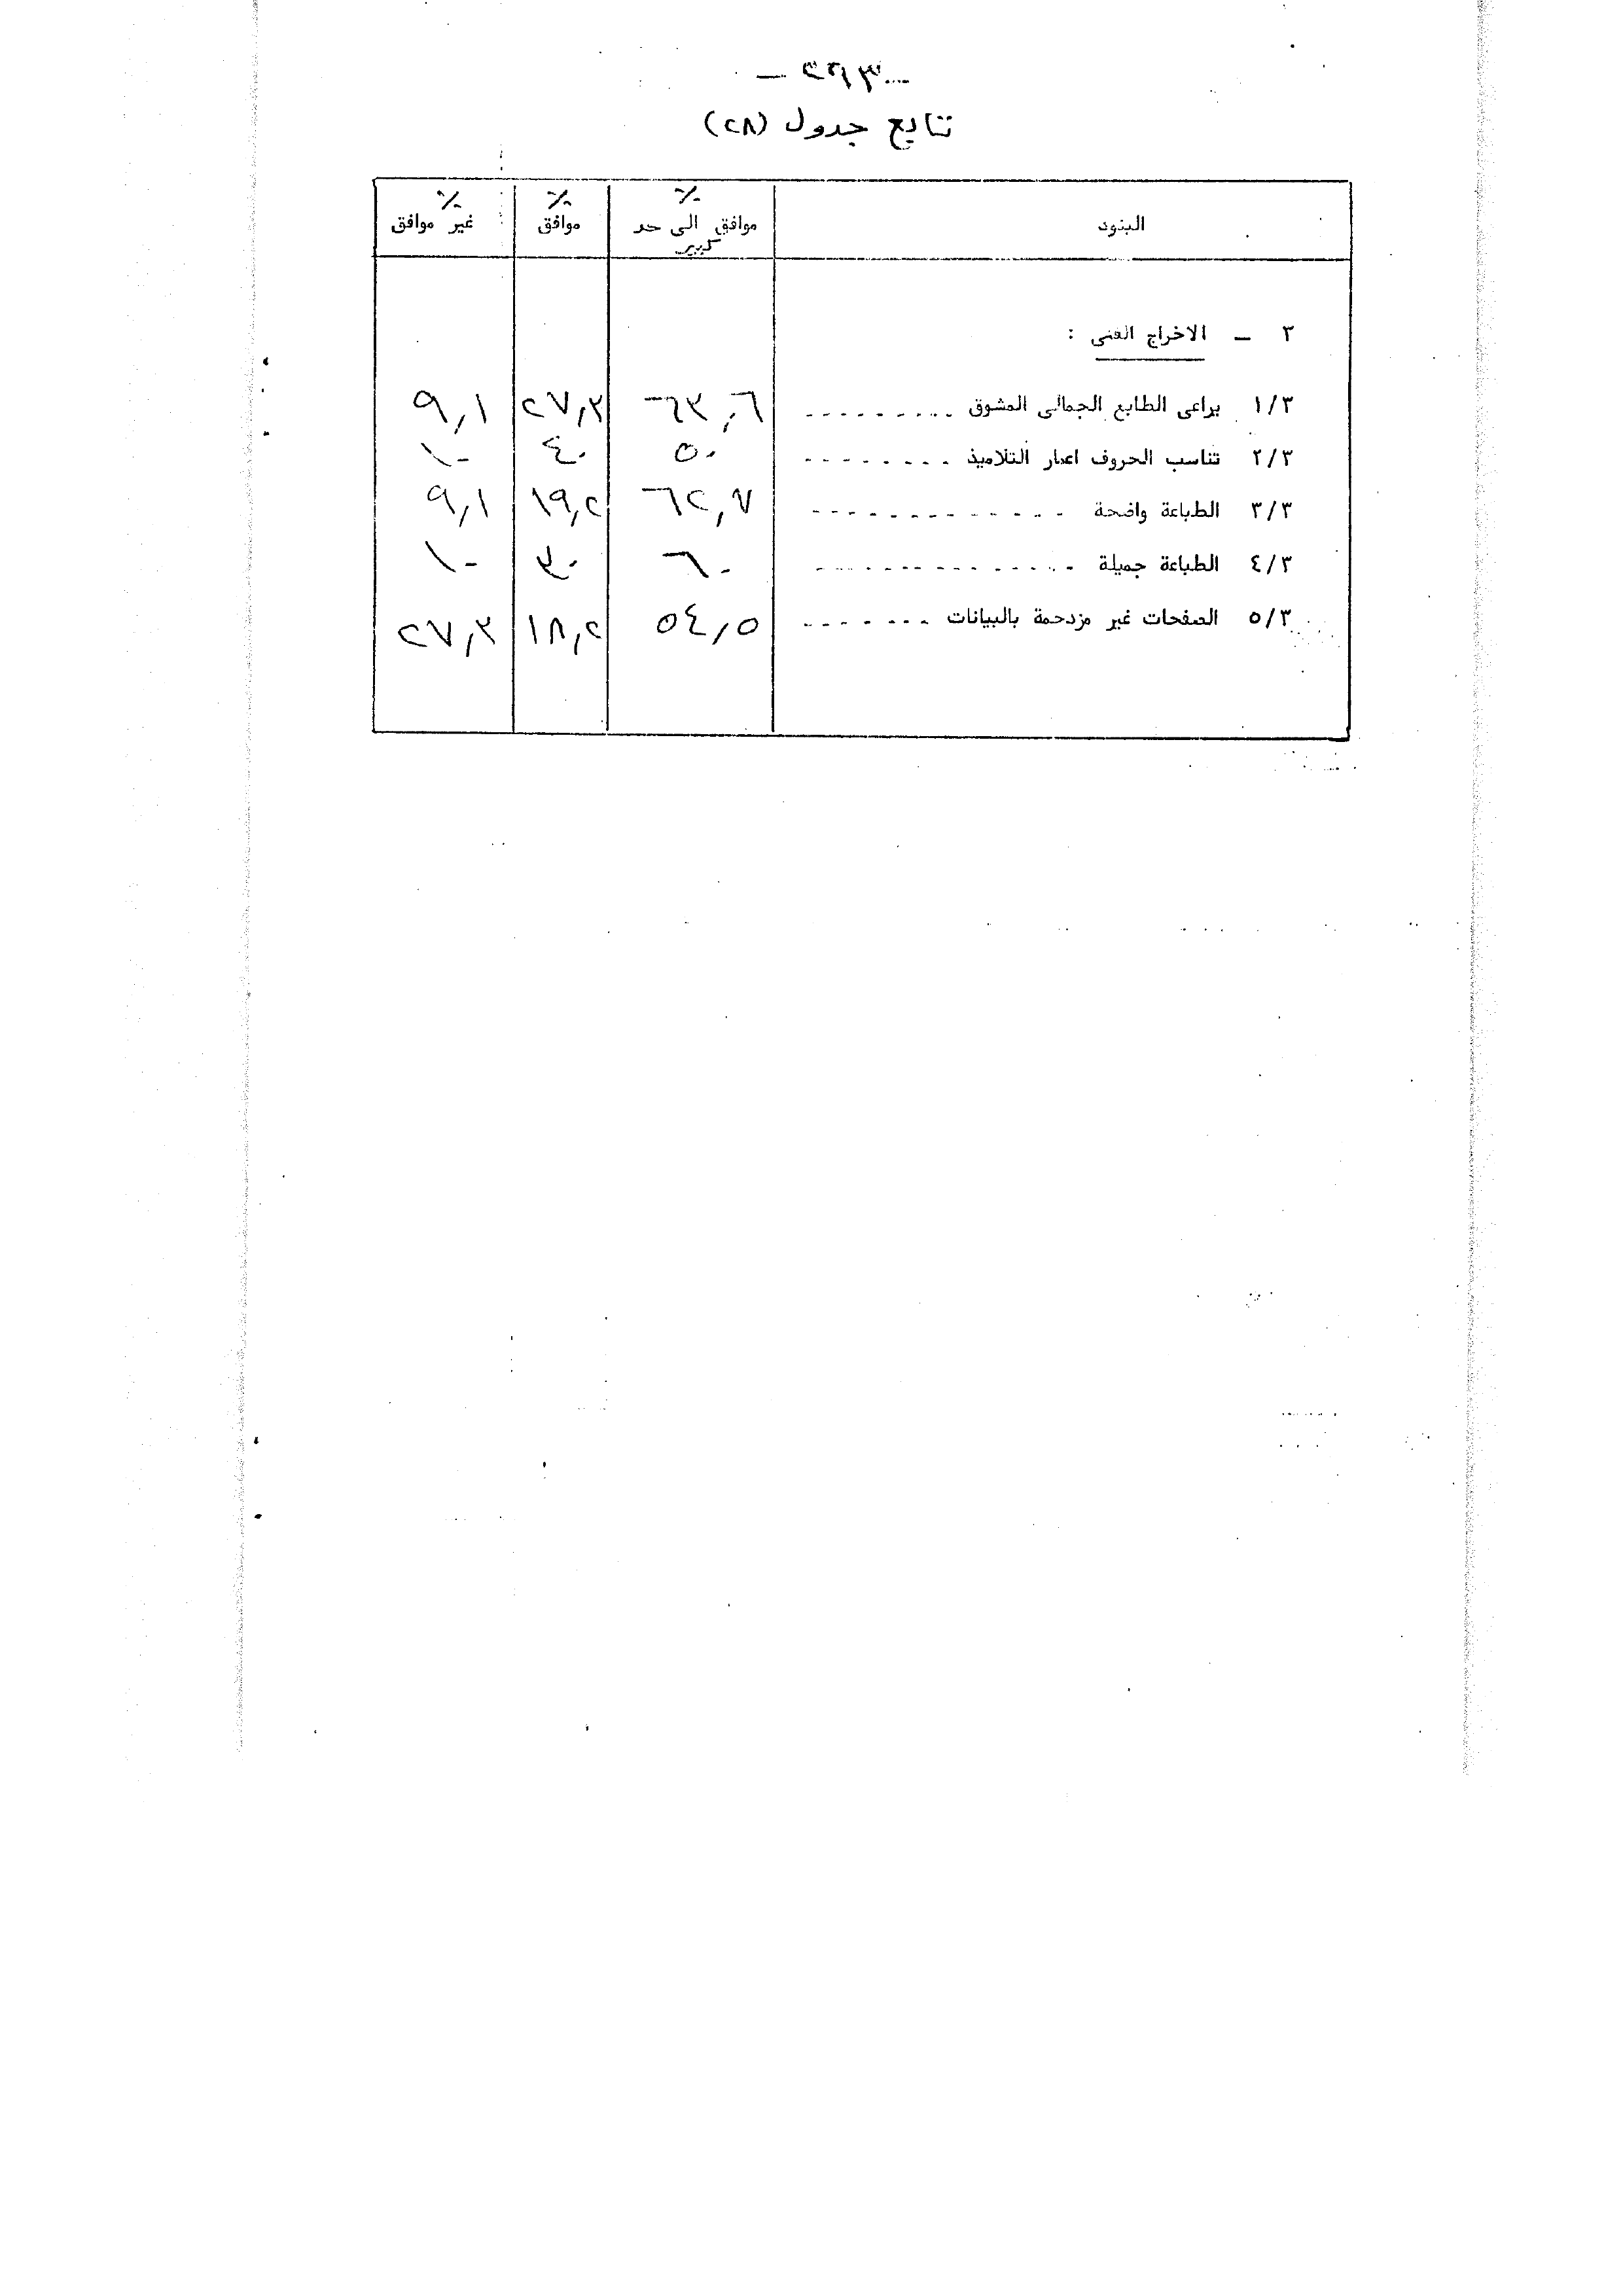 تابع جدول (٢٨)
البنود ٪ موافق الى حد كبير ٪ موافق ٪ غير موافق
٣ ـ الاخراج الفنى :
١/٣ يراعى الطابع الجمالى المشوق ٦٣,٦ ٢٧,٣ ٩,١
٢/٣ تناسب الحروف اعمار التلاميذ ٥٠ ٤٠ ١٠
٣/٣ الطباعة واضحة ٦٢,٧ ١٩,٢ ٩,١
٤/٣ الطباعة جميلة ٦٠ ٣٠ ١٠
٥/٣ الصفحات غير مزدحمة بالبيانات ٥٤,٥ ١٨,٢ ٢٧,٣